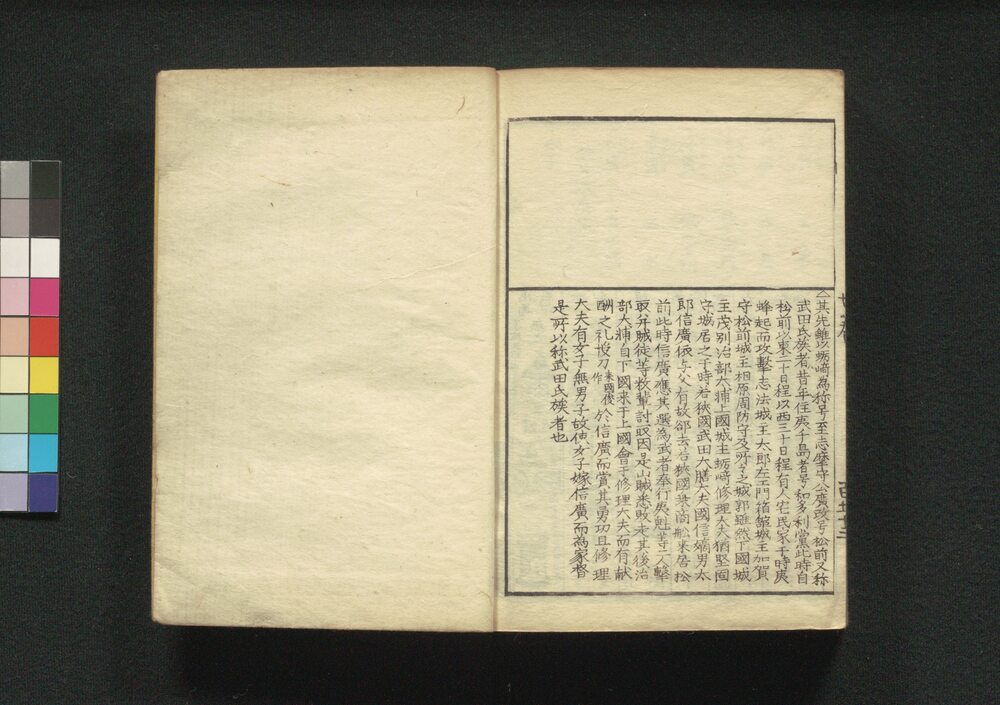 △其先雖以蛎﨑為称号至志摩守公廣改号松前又称
武田氏族者昔年住夷千島者号和多利黨此時自
松前以東二十日程以西三十日程有人宅民家于時夷
蜂起而攻撃志法城主太郎左エ門箱館城主加賀
守松前城主相原周防守及所々之城郭雖然下國城
主茂別治部大輔上國城主蛎﨑修理大夫猶堅固
守城居之于時若狹國武田大膳大夫國信嫡男太
郎信廣依与父有故卻去若狹國 商舩来居松
前此時信廣應其選為武者奉行夷魁等二人撃
取并賊徒等枚輩討取因是山賊悉敗走其後治
部大輔自下國来于上國會于修理大夫而有献
酬之礼授刀来國俊作於信廣而賞其勇功且修理
大夫有女子無男子故使女子嫁信廣而為家督
是所以称武田氏族者也